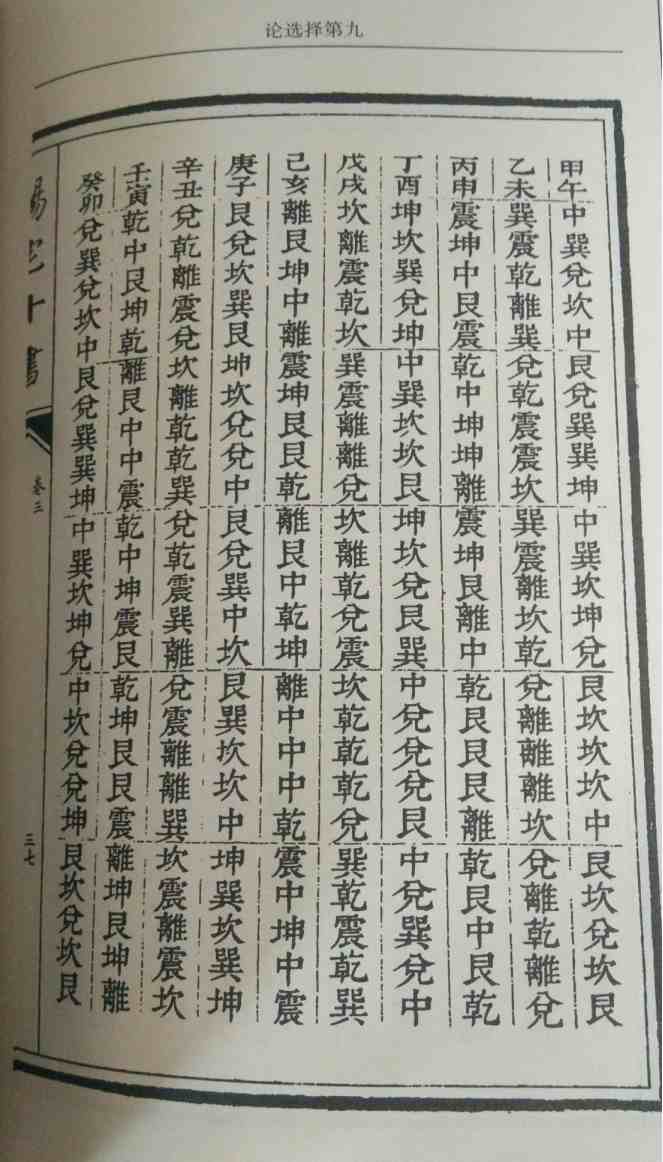 论选择第九
甲午中巽兌坎中艮兌巽巽坤中巽坎坤兌艮坎坎坎中艮坎兌坎艮
乙未巽震乾離巽兌乾震震坎巽震離坎乾兌離離離坎兌離乾離兌
丙申震坤中艮震乾中坤坤離震坤艮離中乾艮艮艮離乾艮中艮乾
丁酉坤坎巽兌坤中巽坎坎艮坤坎兌艮巽中兌兌兌艮中兌巽兌中
戊戌坎離震乾坎巽震離離兌坎離乾兌震坎乾乾乾兌巽乾震乾巽
己亥離艮坤中離震坤艮艮乾離艮中乾坤離中中中乾震中坤中震
庚子艮兌坎巽艮坤坎兌兌中艮兌巽中坎艮巽坎坎中坤巽坎巽坤
辛丑兌乾離震兌坎離乾乾巽兌乾震巽離兌震離離巽坎震離震坎
壬寅乾中艮坤乾離艮中中震乾中坤震艮乾坤艮艮震離坤艮坤離
癸卯兌巽兌坎中艮兌巽巽坤中巽坎坤兌中坎兌兌坤艮坎兌坎艮
陽宅十書
卷三
三七